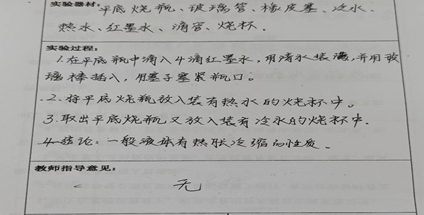 实验器材：平底烧瓶、玻璃管、橡皮塞、冷水、
热水、红墨水、滴管、烧杯.
实验过程：
1.在平底瓶中滴入4滴红墨水，用清水装满，并用玻
璃棒插入，用塞子塞紧瓶口。
2.将平底烧瓶放入装有热水的烧杯中。
3.取出平底烧瓶又放入装有冷水的烧杯中.
4.结论：一般液体有热胀冷缩的性质.
教师指导意见：
无